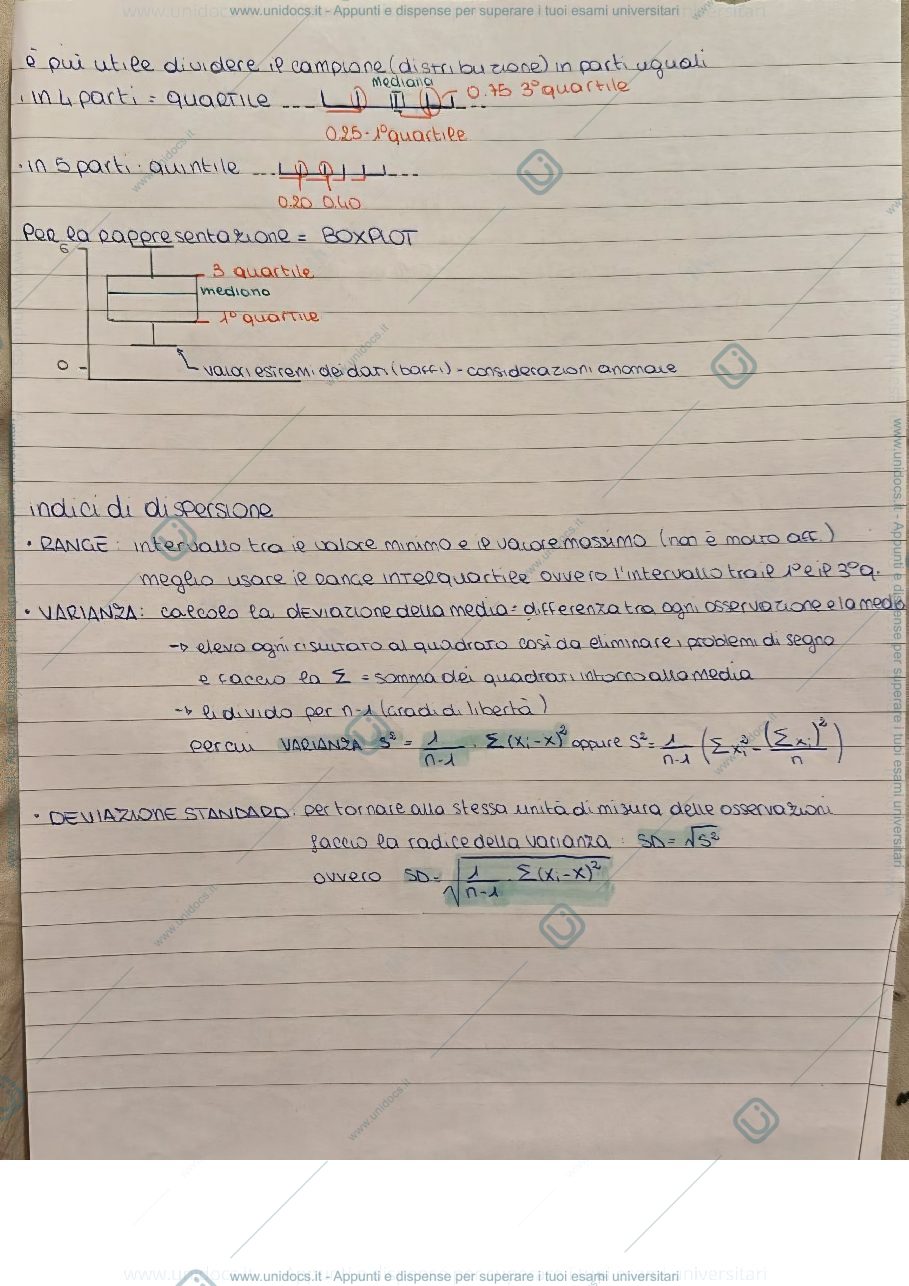 www.unidocs.it - Appunti e dispense per superare i tuoi esami universitari
è più utile dividere il campione (distribuzione) in parti uguali
mediana
· in 4 parti = quartile 0.75 3° quartile
0.25 · 1° quartile
· in 5 parti · quintile
0.20 0.40
Per la rappresentazione = BOXPLOT
6
3 quartile
mediana
1° quartile
0 valori estremi dei dati (baffi) - considerazioni anomale
indici di dispersione
• RANGE: intervallo tra il valore minimo e il valore massimo (non è molto aff.)
meglio usare il range interquartile ovvero l'intervallo tra il 1° e il 3° q.
• VARIANZA: calcolo la deviazione della media = differenza tra ogni osservazione e la media
→ elevo ogni risultato al quadrato così da eliminare i problemi di segno
e faccio la Σ = somma dei quadrati intorno alla media
→ li divido per n-1 (gradi di libertà)
per cui VARIANZA S² = 1/(n-1) · Σ(xi-x)² oppure S² = 1/(n-1) (Σxi² - (Σxi)²/n)
• DEVIAZIONE STANDARD: per tornare alla stessa unità di misura delle osservazioni
faccio la radice della varianza : SD = √S²
ovvero SD = √(1/(n-1) · Σ(xi-x)²)
www.unidocs.it - Appunti e dispense per superare i tuoi esami universitari
www.unidocs.it - Appunti e dispense per superare i tuoi esami universitari